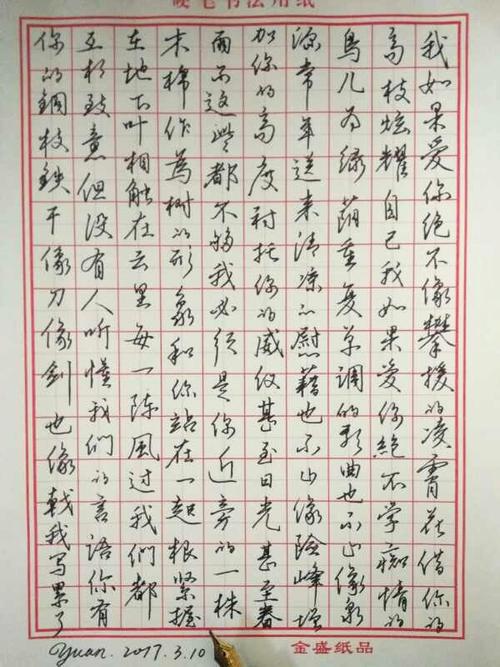 硬笔书法用纸
我如果爱你绝不像攀援的凌霄花借你的
高枝炫耀自己我如果爱你絕不学痴情的
鸟儿为绿荫重复单调的歌曲也不止像泉
源常年送来清凉的慰藉也不止像险峰增
加你的高度衬托你的威仪甚至日光甚至春
雨不这些都不够我必须是你近旁的一株
木棉作為树的形象和你站在一起根紧握
在地下叶相触在云里每一阵风过我们都
互相致意但没有人听懂我们的言语你有
你的銅枝鉄干像刀像剑也像戟我写累了
yuan. 2017.3.10
金盛纸品